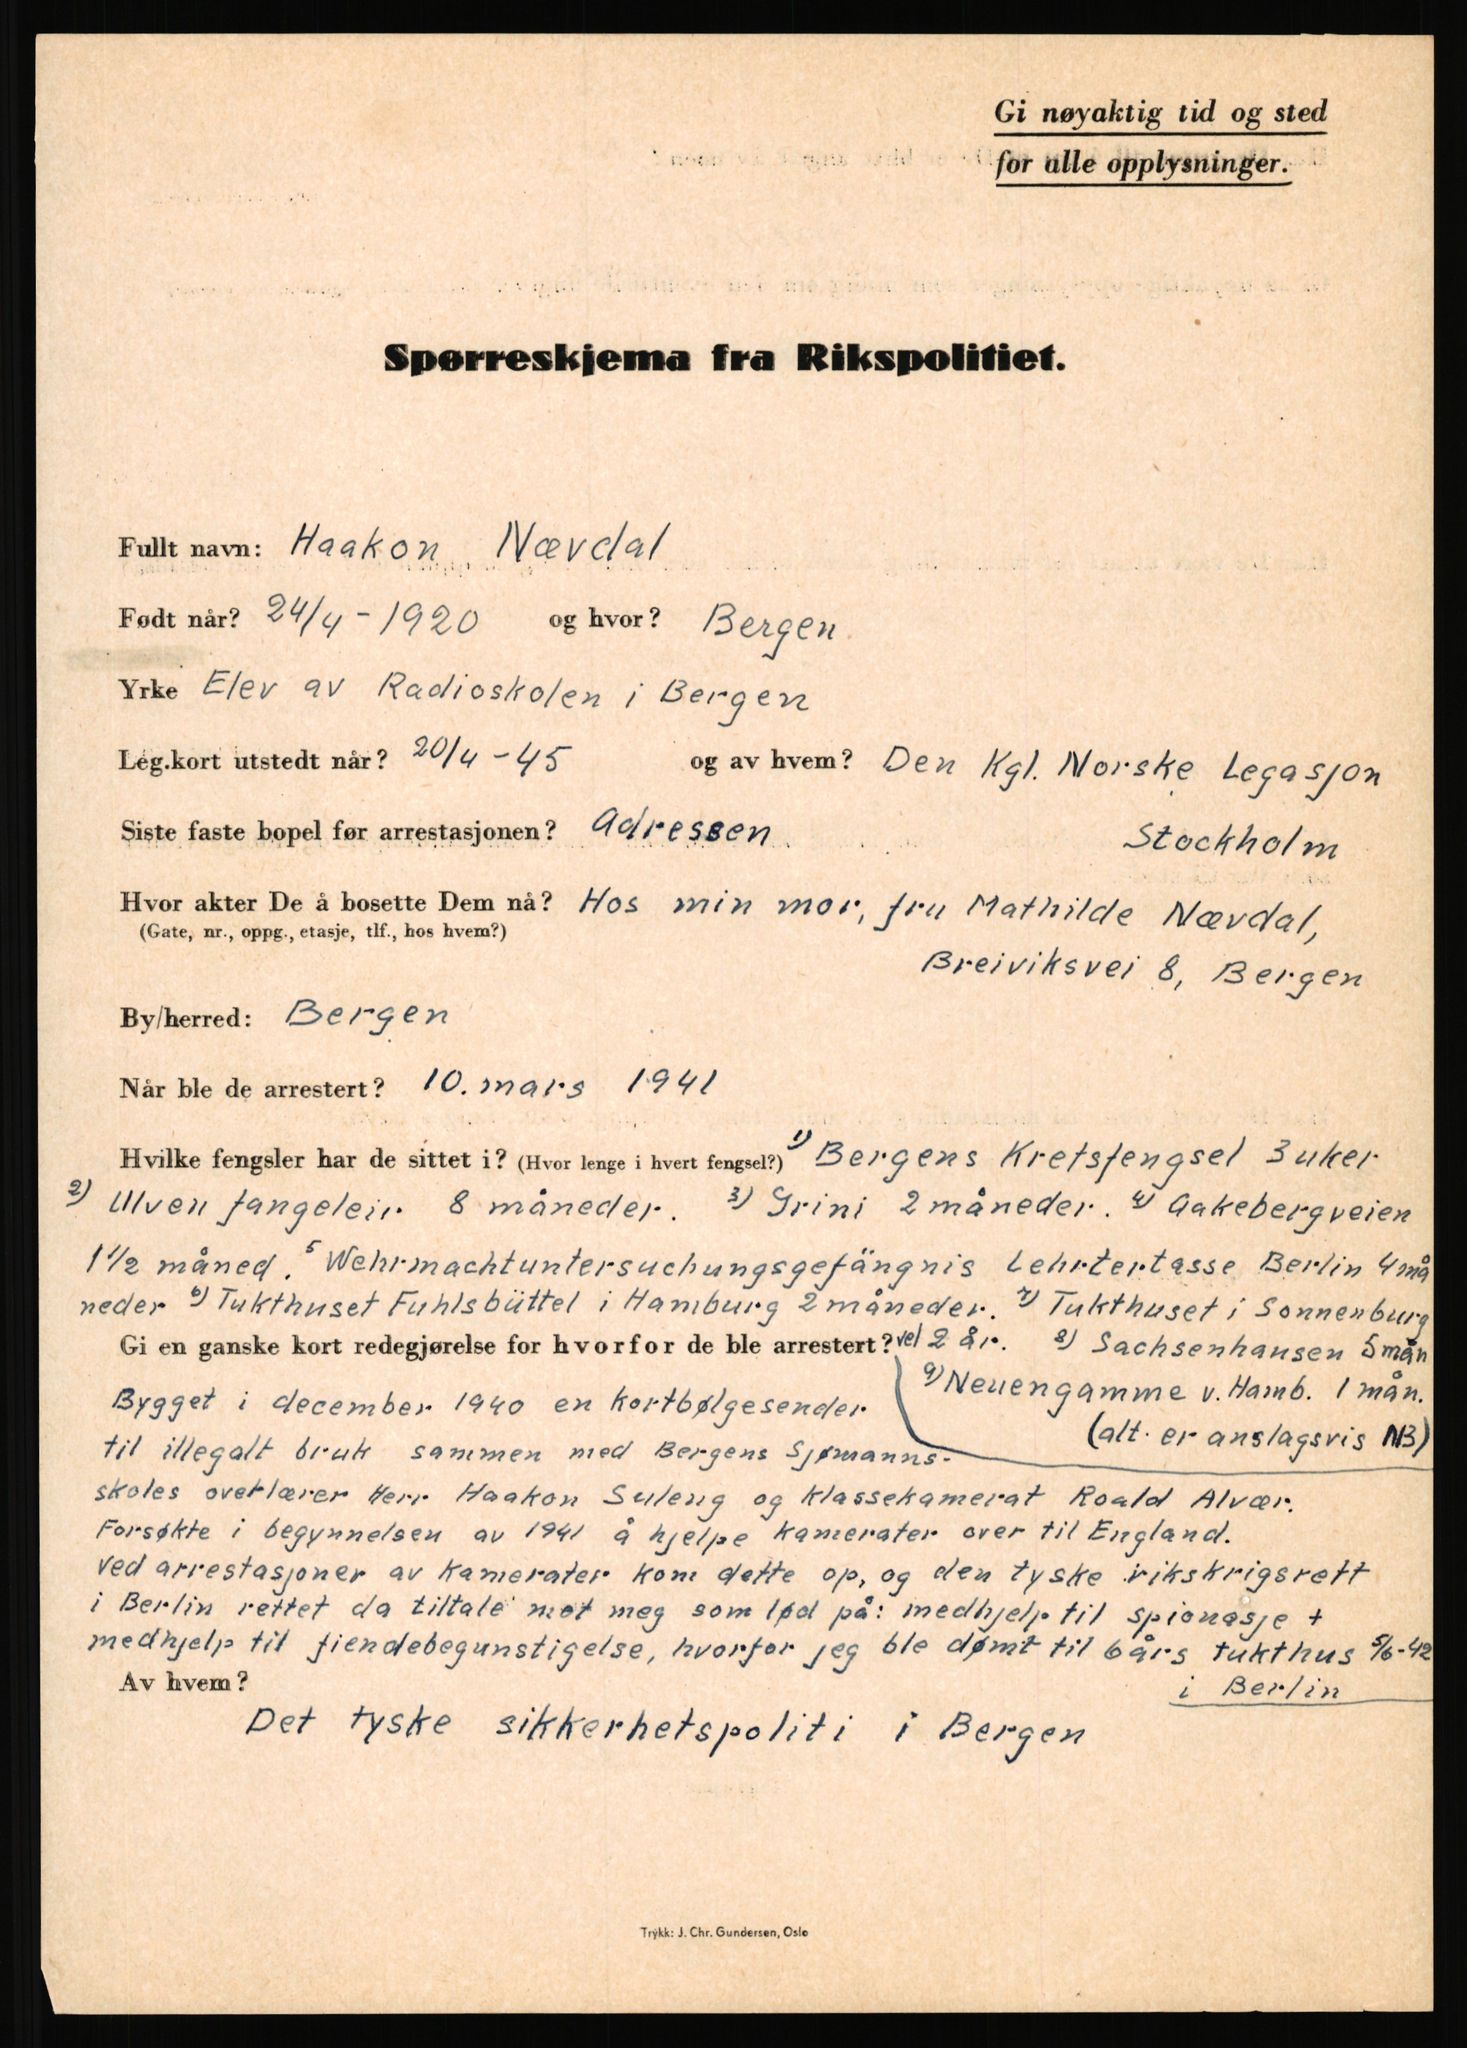 Gi nøyaktig tid og sted
for alle opplysninger.
Spørreskjema fra Rikspolitiet.
Fullt navn: Haakon Nævdal
Født når? 24/4 - 1920 og hvor? Bergen
Yrke Elev av Radioskolen i Bergen
Leg.kort utstedt når? 20/4 - 45 og av hvem? Den Kgl. Norske Legasjon
Stockholm
Siste faste bopel før arrestasjonen? Adressen
Hvor akter De å bosette Dem nå? Hos min mor, fru Mathilde Nævdal,
(Gate, nr., oppg., etasje, tlf., hos hvem?)
Breiviksvei 8, Bergen
By/herred: Bergen
Når ble de arrestert? 10. mars 1941
Hvilke fengsler har de sittet i? (Hvor lenge i hvert fengsel?) 1) Bergens Kretsfengsel 3 uker
2) Ulven fangeleir 8 måneder. 3) Grini 2 måneder. 4) Aakebergveien
1 1/2 måned. 5 Wehrmachtuntersuchungsgefängnis Lehrtertasse Berlin 4 må
neder 6) Tukthuset Fuhlsbüttel i Hamburg 2 måneder. 7) Tukthuset i Sonnenburg
vel 2 år. 8) Sachsenhausen 5 mån
9) Neuengamme v. Hamb. 1 mån.
(alt er anslagsvis NB)
Gi en ganske kort redegjørelse for hvorfor de ble arrestert?
Bygget i december 1940 en kortbølgesender
til illegalt bruk sammen med Bergens Sjømanns-
skoles overlærer Herr Haakon Suleng og klassekamerat Roald Alvær.
Forsøkte i begynnelsen av 1941 å hjelpe kamerater over til England.
Ved arrestasjoner av kamerater kom dette op, og den tyske rikskrigsrett
i Berlin rettet da tiltale mot meg som lød på: medhjelp til spionasje +
medhjelp til fiendebegunstigelse, hvorfor jeg ble dømt til 6 års tukthus 5/6-42
i Berlin
Av hvem?
Det tyske sikkerhetspoliti i Bergen
Trykk: J. Chr. Gundersen, Oslo